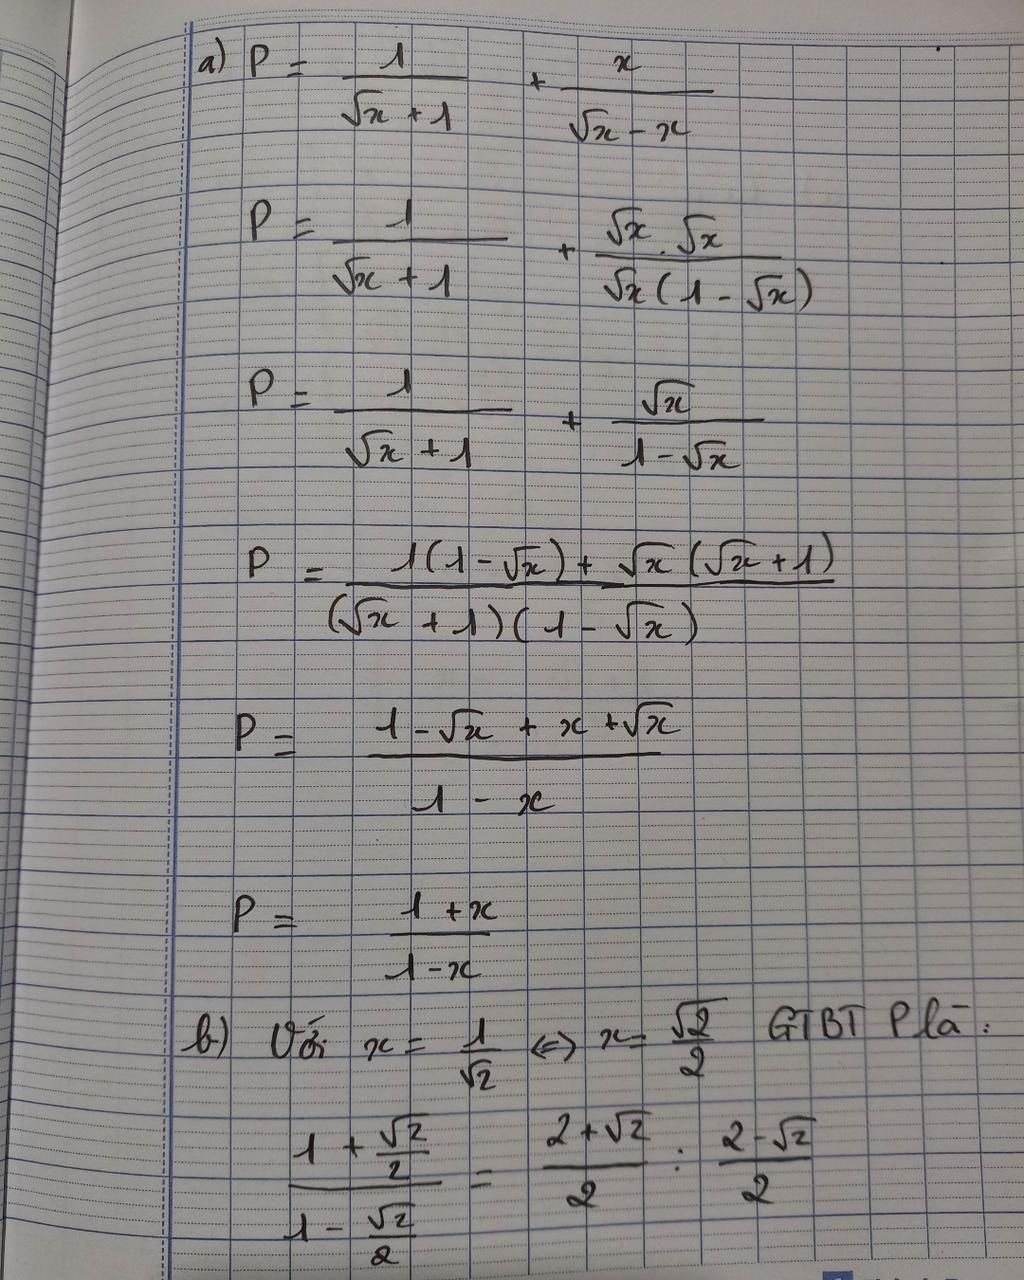 a) P = 1/(√x + 1) + x/(√x - x)
P = 1/(√x + 1) + (√x . √x)/(√x(1 - √x))
P = 1/(√x + 1) + √x/(1 - √x)
P = (1(1 - √x) + √x(√x + 1))/((√x + 1)(1 - √x))
P = (1 - √x + x + √x)/(1 - x)
P = (1 + x)/(1 - x)
b) Với x = 1/√2 <=> x = √2/2 GTBT P là :
(1 + √2/2)/(1 - √2/2) = (2 + √2)/2 : (2 - √2)/2